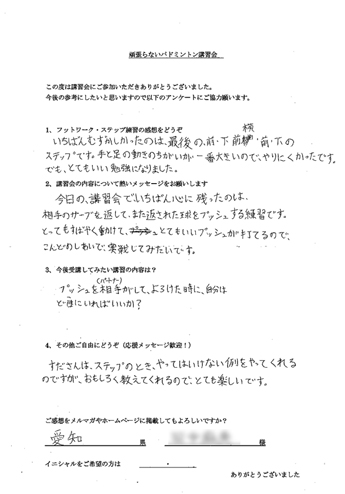 頑張らないバドミントン講習会
この度は講習会にご参加いただきありがとうございました。
今後の参考にしたいと思いますので以下のアンケートにご協力願います。
1、フットワーク・ステップ練習の感想をどうぞ
いちばんむずかしかったのは、最後の、前・下 前横・前・下の
ステップです。手と足の動きのちがいが一番大きいので、やりにくかったです。
でも、とてもいい勉強になりました。
2、講習会の内容について熱いメッセージをお願いします
今日の、講習会でいちばん心に残ったのは、
相手のサーブを返して、また返された球をプッシュする練習です。
とってもすばやく動けて、とてもいいプッシュが打てるので、
こんどのしあいで、実戦してみたいです。
3、今後受講してみたい講習の内容は?
(パートナー)
プッシュを相手がして、よろけた時に、自分は
どこにいればいいか?
4、その他ご自由にどうぞ(応援メッセージ歓迎!)
すださんは、ステップのとき、やってはいけない例をやってくれる
のですが、おもしろく教えてくれるので、とても楽しいです。
ご感想をメルマガやホームページに掲載してもよろしいですか?
愛知 県 様
イニシャルをご希望の方は ・
ありがとうございました